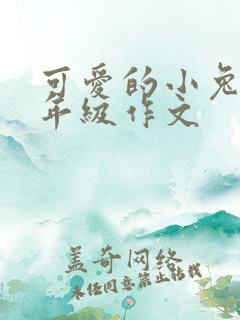 可愛的小兔
年級作文
盖奇网络
未经同意禁止转载